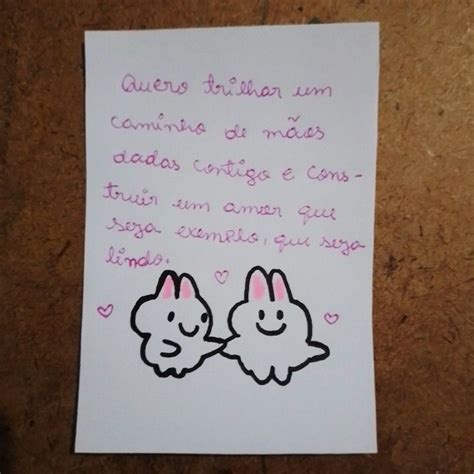 Quero trilhar um
caminho de mãos
dadas contigo e cons-
truir um amor que
seja exemplo, que seja
lindo.